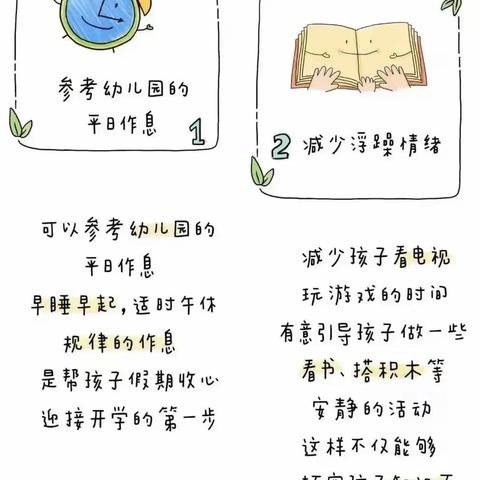 参考幼儿园的
平日作息
1
可以参考幼儿园的
平日作息
早睡早起，适时午休
规律的作息
是帮孩子假期收心
迎接开学的第一步
2 减少浮躁情绪
减少孩子看电视
玩游戏的时间
有意引导孩子做一些
看书、搭积木等
安静的活动
这样不仅能够